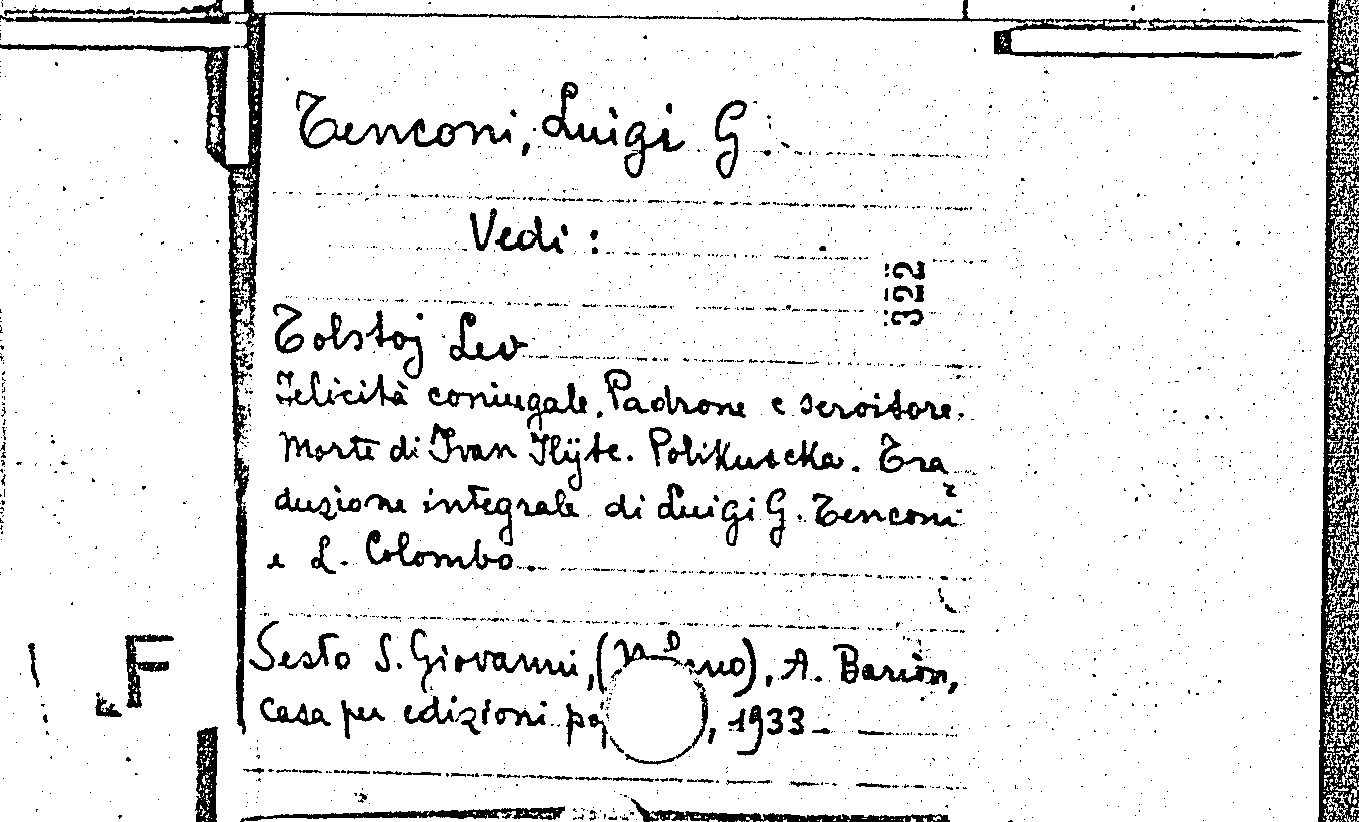 Tenconi, Luigi G.
Vedi :
322
Tolstoj Lev
Felicità coniugale. Padrone e servitore.
Morte di Ivan Ilijtc. Polikuscka. Tra
duzione integrale di Luigi G. Tenconi
e L. Colombo.
Sesto S. Giovanni, A. Barion,
Casa per edizioni , 1933
F